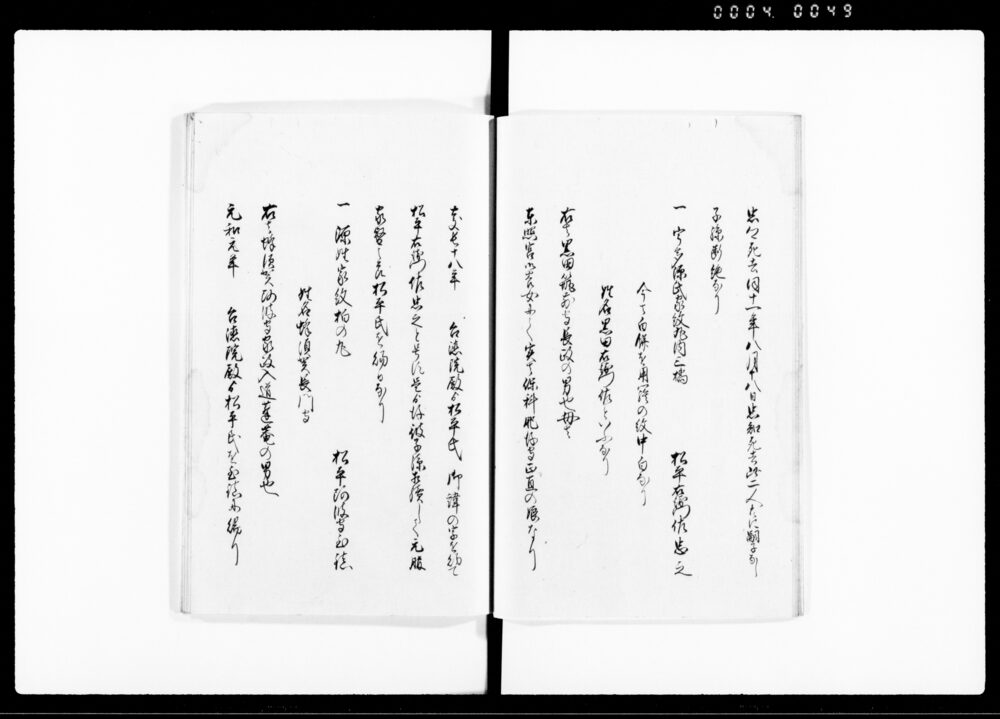 0004 0049
死去同十一年八月十八日忠知死去此二人共に嗣子なし
子孫断絶なり
一 宇多源氏家紋丸内三橘 松平右衛門佐忠之
今者白餅を用藤の紋中白なり
姓名黒田右衛門佐といふなり
右者黒田筑前守長政の男也母者
東照宮御養女にして実者保科肥後守正直の娘なり
慶長十八年 台徳院殿より松平氏 御諱の字を給て
松平右衛門佐忠之と号す是より後彼子孫相続して元服
家督之節松平氏を給るなり
一 源姓家紋柏の丸 松平阿波守至鎮
姓名蜂須賀長門守
右者蜂須賀阿波守家政入道蓬庵の男也
元和元年 台徳院殿より松平氏を至鎮に賜り